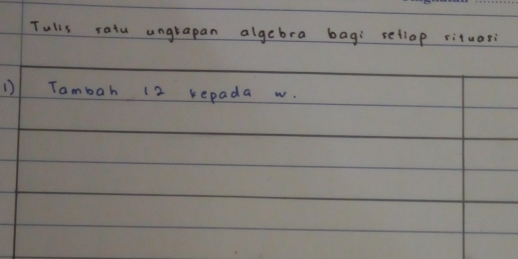 Tulis satu ungkapan algebra bagi setiap situasi
1) Tambah 12 kepada w.